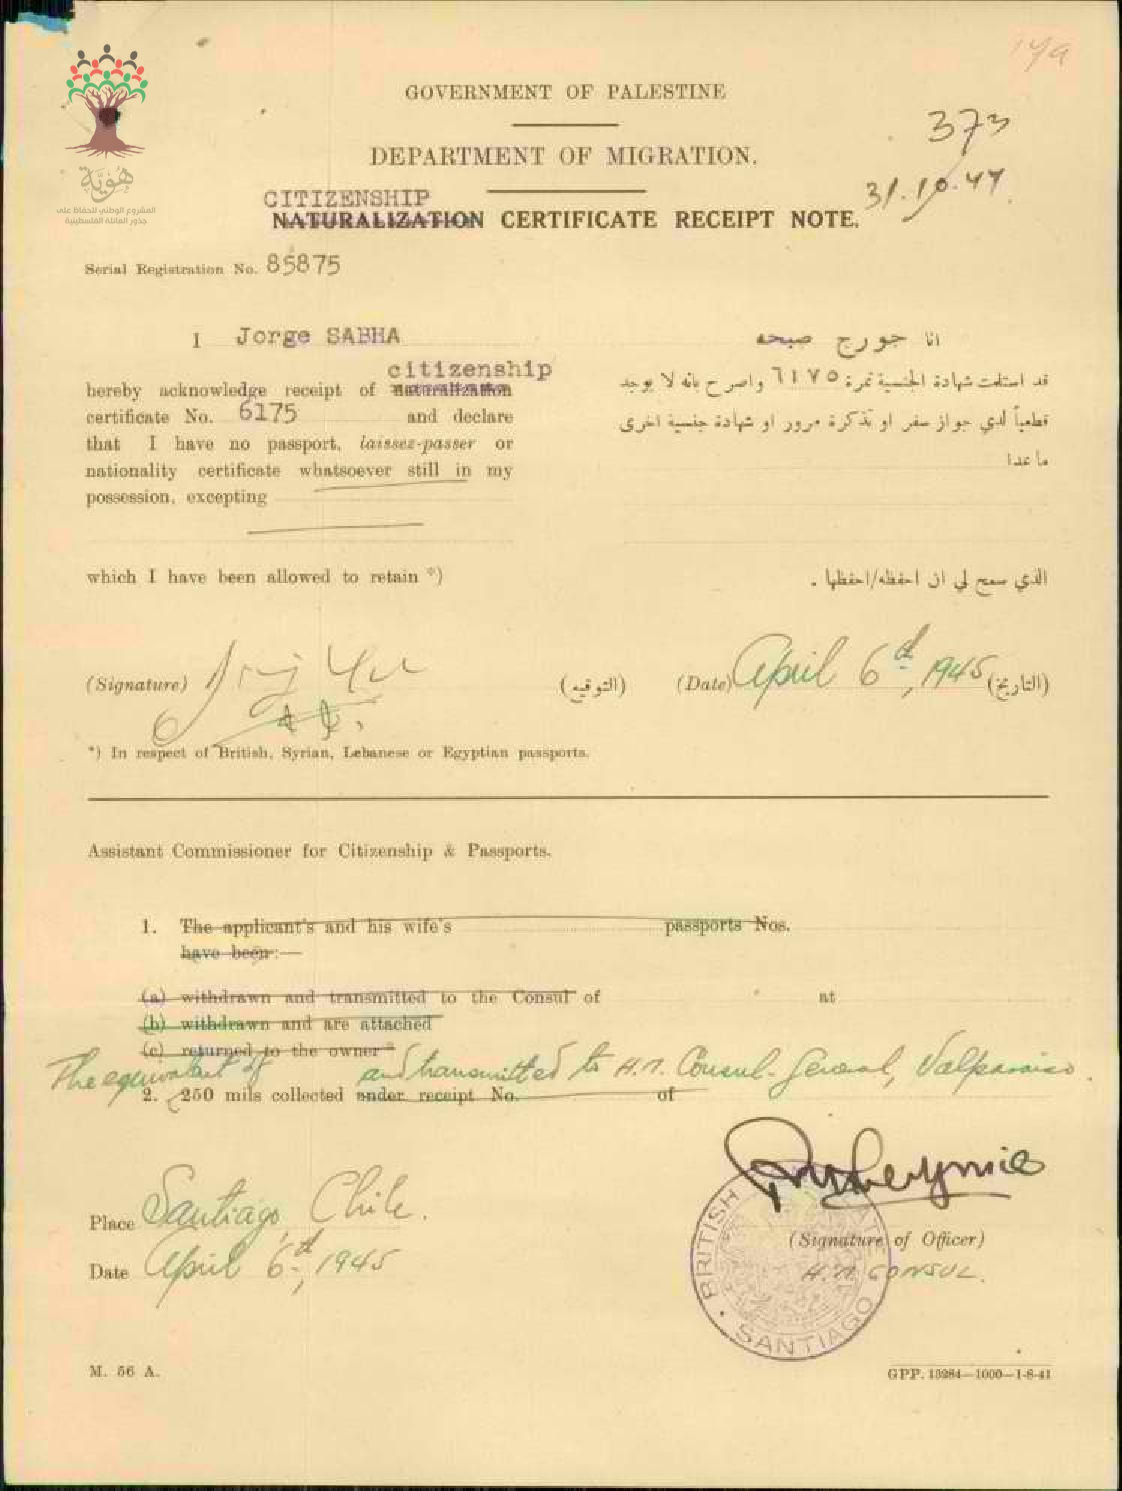 14a
هُوِيَّة
المشروع الوطني للحفاظ على
جذور العائلة الفلسطينية
GOVERNMENT OF PALESTINE
373
DEPARTMENT OF MIGRATION.
31.10.44
CITIZENSHIP
NATURALIZATION CERTIFICATE RECEIPT NOTE.
Serial Registration No. 85875
I Jorge SABHA
انا جورج صبحه
citizenship
hereby acknowledge receipt of naturalization
certificate No. 6175 and declare
that I have no passport, laissez-passer or
nationality certificate whatsoever still in my
possession, excepting
قد استلمت شهادة الجنسية نمرة ٦١٧٥ واصرح بانه لا يوجد
قطعياً لدي جواز سفر او تذكرة مرور او شهادة جنسية اخرى
ما عدا
which I have been allowed to retain *)
الذي سمح لي ان احفظه/احفظها .
(Signature) (التوقيع) (Date) April 6th, 1945 (التاريخ)
*) In respect of British, Syrian, Lebanese or Egyptian passports.
Assistant Commissioner for Citizenship & Passports.
1. The applicant's and his wife's passports Nos.
have been:—
(a) withdrawn and transmitted to the Consul of at
(b) withdrawn and are attached
(c) returned to the owner*
The equivalent of and transmitted to H.M. Consul-General, Valparaiso.
2. 250 mils collected under receipt No. of
Place Santiago, Chile.
Date April 6th, 1945
(Signature of Officer)
H.M. CONSUL.
BRITISH
SANTIAGO
M. 56 A.
GPP. 13284—1000—1-8-41